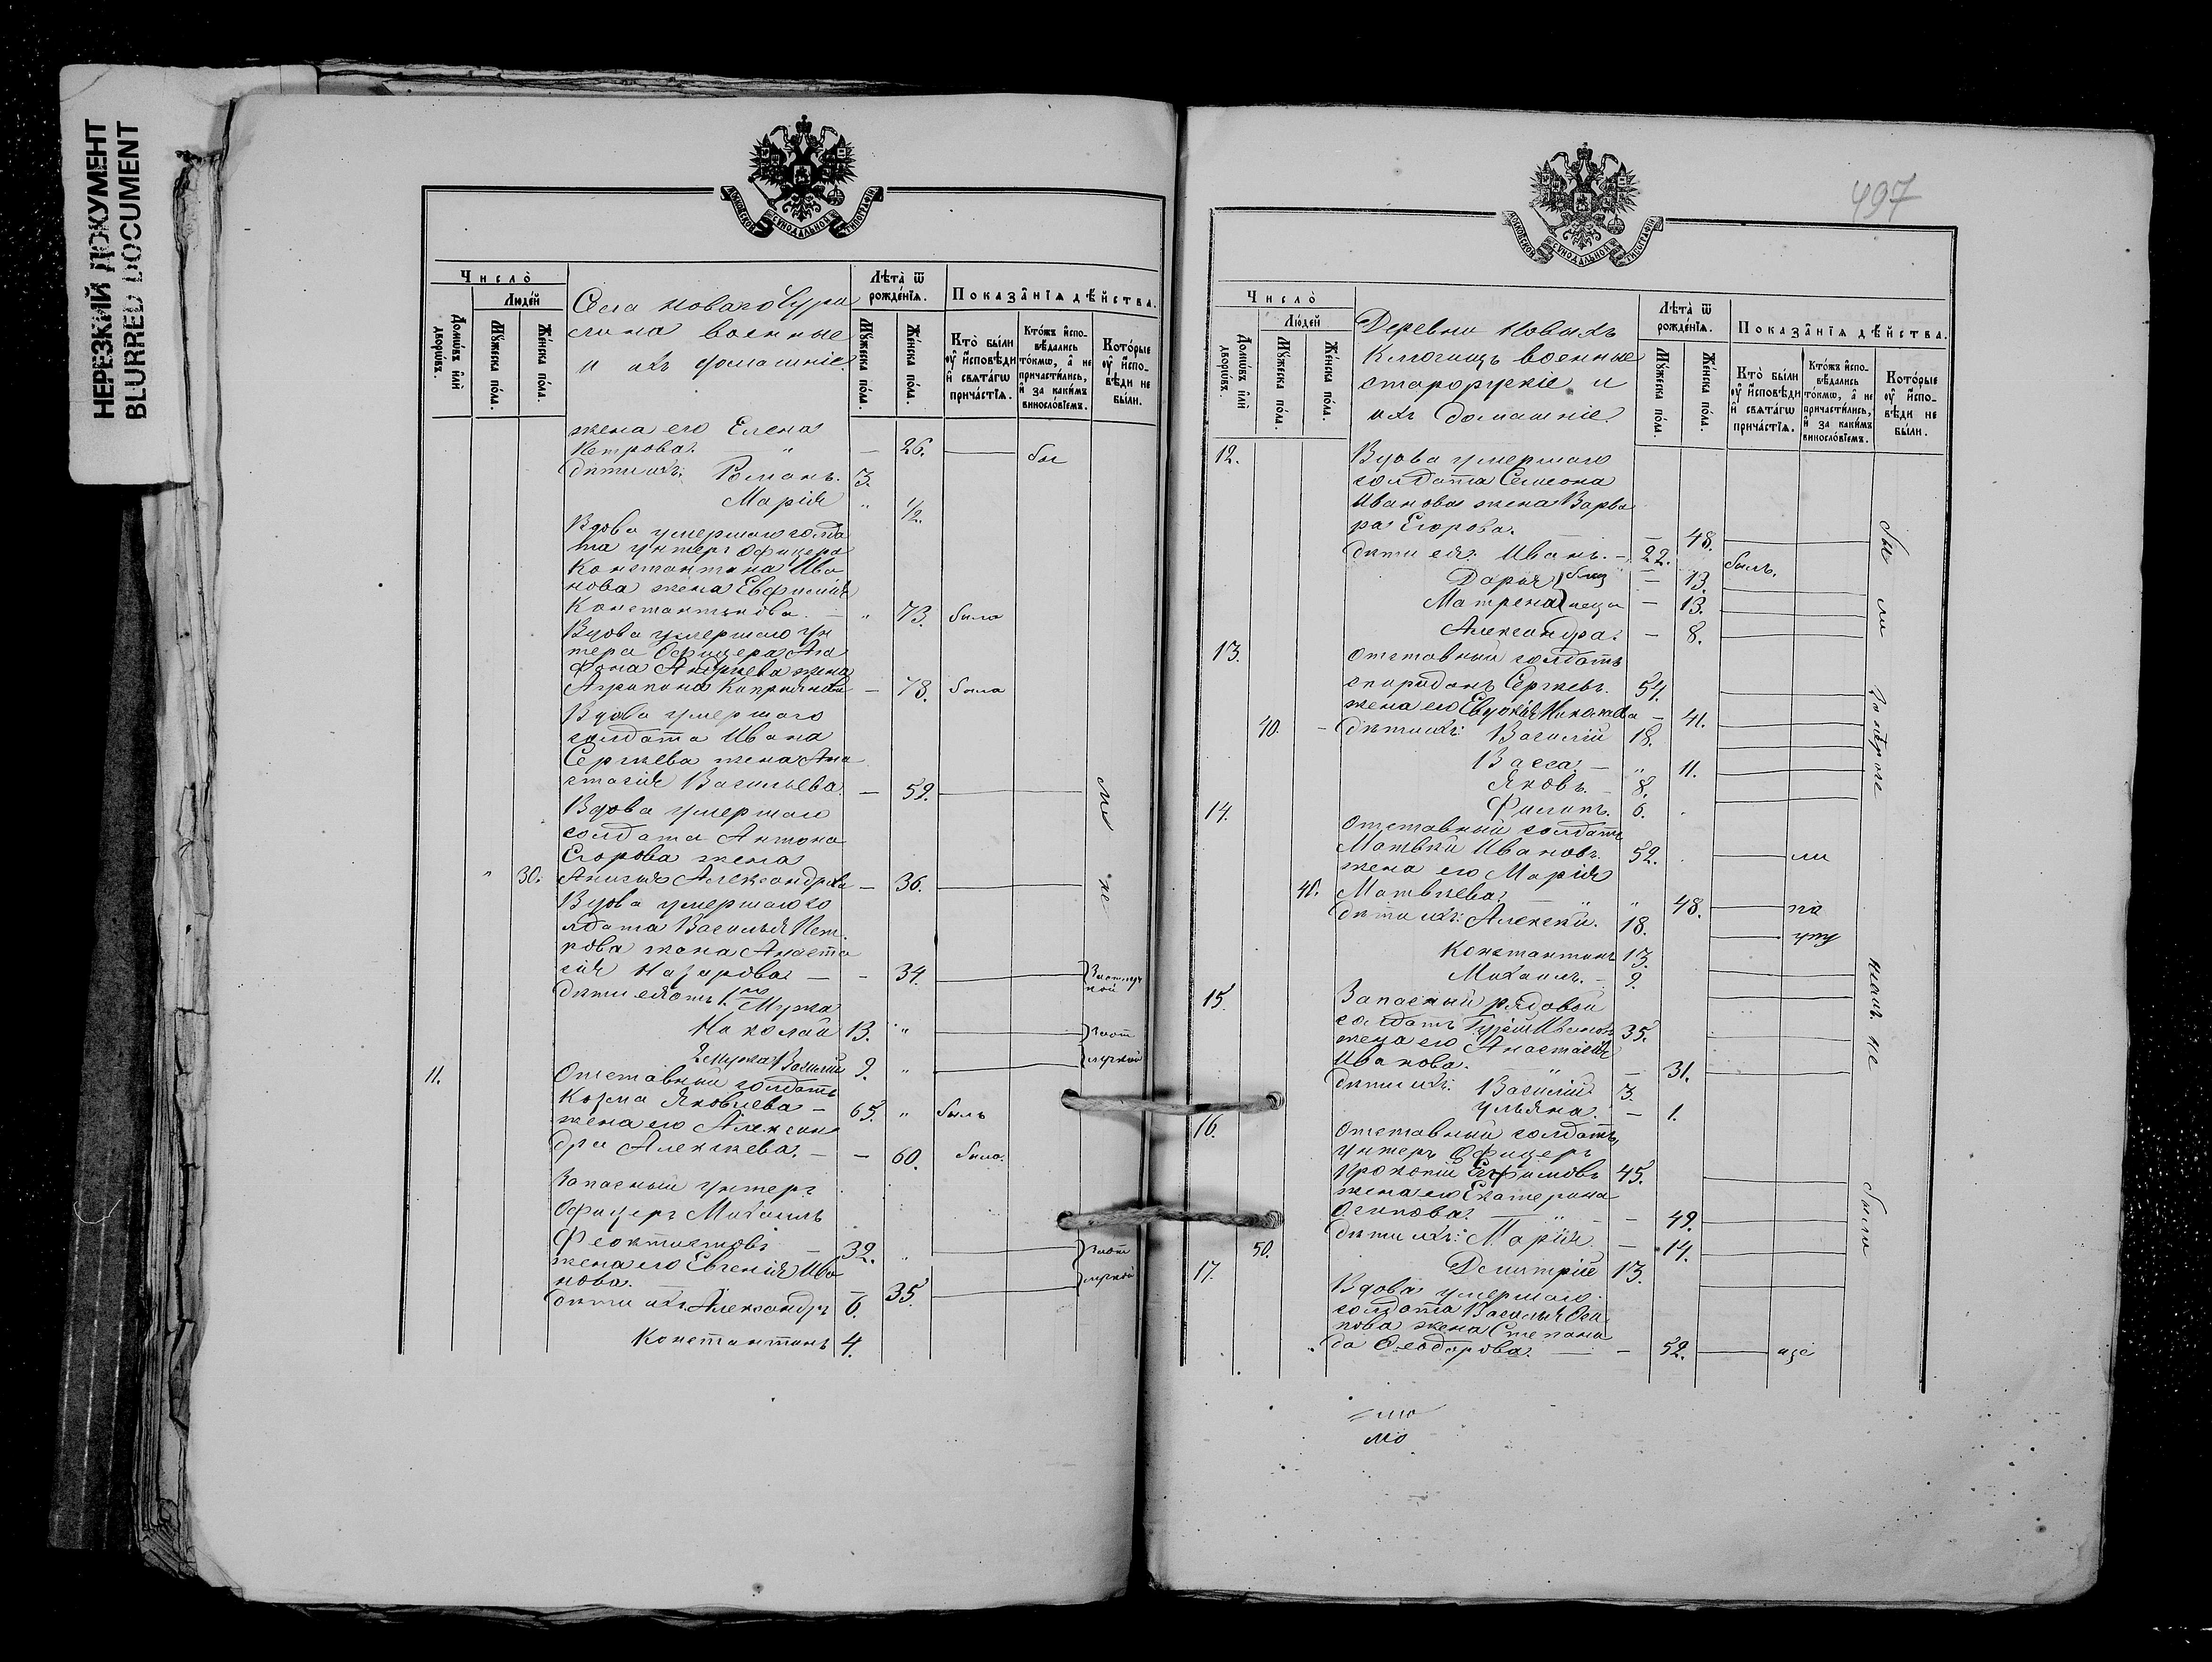 НЕРЕЗКИЙ ДОКУМЕНТ
BLURRED DOCUMENT
МОСКОВСКОЙ СѴНОДАЛЬНОЙ ТИПОГРАФІИ
Число̀
Люде́й
Домѡ́въ и҆лѝ дворѡ́въ.
Мꙋ́жеска по́ла.
Же́нска по́ла.
Села Новаго Бура
сина военные
и ихъ домашніе.
Лѣта̀ ѿ рожде́нїѧ.
Мꙋ́жеска по́ла.
Же́нска по́ла.
Показа̑нїѧ дѣ́йства.
Кто̀ бы́ли оу҆ и҆сповѣ́ди и҆ свѧта́гѡ прича́стїѧ.
Кто́жъ и҆сповѣ́дались то́кмѡ, а҆ не причасти́лись, и҆ за каки́мъ винослóвїемъ.
Кото́рые оу҆ и҆сповѣ́ди не бы́ли.
жена его Елена
Петрова. " — 26. — бы
дѣти ихъ: Романъ. 3.
Марія " 1/2.
Вдова умершаго солда
та унтеръ офицера
Константина Ива
нова жена Евфимія
Константинова. — " 73. была
Вдова умершаго ун
тера Офицера Ага
фона Андреева жена
— 78. была
Вдова умершаго
солдата Ивана
Сергѣева жена Ана
стасія Васильева. — 59. — ли
Вдова умершаго
солдата Антона
Егорова жена
" 30. Александрова — 36. — не
Вдова умершаго со
лдата Василья Пет
рова жена Анаста
сія Назарова — — 34.
дѣти ея отъ 1го Мужа
Николай 13. "
2 мужа Василій 9. "
11. Отставный солдатъ
Козма Яковлева — 65. " былъ
жена его Алексан
дра Алексѣева. — — 60. была.
Запасный унтеръ
Офицеръ Михаилъ
Феоктистовъ — 32. "
жена его Евгенія Ива
нова. — 35.
дѣти ихъ Александръ 6.
Константинъ 4.
497
МОСКОВСКОЙ СѴНОДАЛЬНОЙ ТИПОГРАФІИ
Число̀
Люде́й
Домѡ́въ и҆лѝ дворѡ́въ.
Мꙋ́жеска по́ла.
Же́нска по́ла.
Деревни Новыхъ
Ключищъ военные
старорускіе и
ихъ домашніе.
Лѣта̀ ѿ рожде́нїѧ.
Мꙋ́жеска по́ла.
Же́нска по́ла.
Показа̑нїѧ дѣ́йства.
Кто̀ бы́ли оу҆ и҆сповѣ́ди и҆ свѧта́гѡ прича́стїѧ.
Кто́жъ и҆сповѣ́дались то́кмѡ, а҆ не причасти́лись, и҆ за каки́мъ винослóвїемъ.
Кото́рые оу҆ и҆сповѣ́ди не бы́ли.
12. Вдова умершаго
солдата Семена
Иванова жена Варва
ра Егорова. — 48.
дѣти ея: Иванъ. — 22. былъ.
Дарья близ — 13.
Матрена нецы — 13.
Александра. — 8.
13. Отставный солдатъ
Спиридонъ Сергѣевъ. 54.
жена его Евдокія Николаева — 41.
40. — дѣти ихъ: Василій 18.
Васса. — " 11.
Яковъ. — 8.
Филипъ. 6.
14. Отставный солдатъ
Матвѣй Ивановъ. 52. — ли
жена его Марія
41. Матвѣева. " " 48. — по
дѣти ихъ: Алексѣй. 18. — уту
Константинъ 13.
Михаилъ. — 9.
15. Запасный рядовой
солдатъ 35.
жена его Анастасія
Иванова. " — 31.
дѣти ихъ: Василій 3.
Ульяна. — 1.
16. Отставный солдатъ
унтеръ Офицеръ
Прокопій Ефимовъ 45.
жена его Екатерина
Осипова. " — 49.
50. дѣти ихъ: Марія. — 14.
Дмитрій 13.
17. Вдова умершаго
солдата Василья Оси
пова жена Степани
да Ѳеодорова. — — 52.
не
было